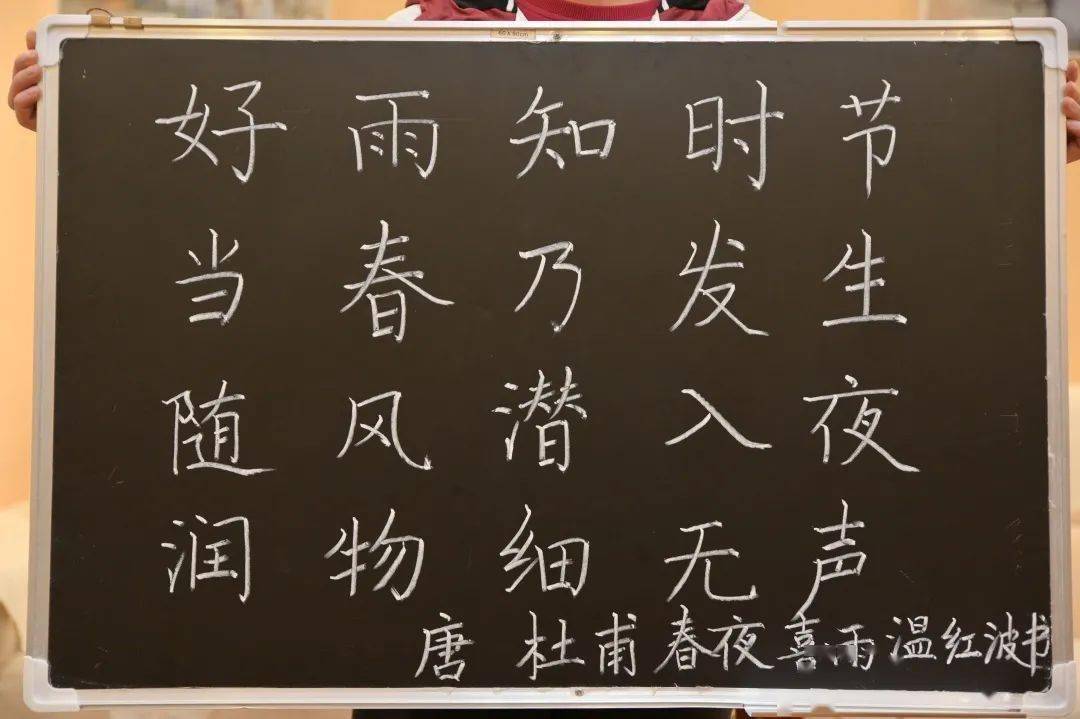 60×90cm
好雨知时节
当春乃发生
随风潜入夜
润物细无声
唐 杜甫 春夜喜雨 温红波书